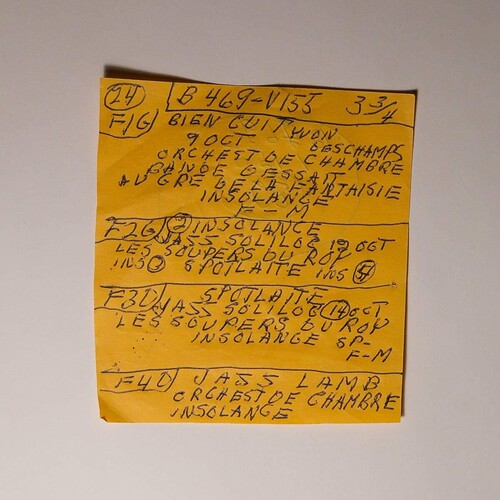 24 B 469-V155 3 3/4
F1G BIEN CUIT NON
9 OCT DESCHAMPS
ORCHEST DE CHAMBRE
BANDE DESSAIT
AU GRE DE LA FANTAISIE
INSOLANGE
F-M
F2G 2 INSOLANCE
JASS SOLILOC 19 OCT
LES SOUPERS DU ROY
INS SPOTLAITE INS
F3D SPOTLAITE
JASS SOLILOC 14 OCT
LES SOUPERS DU ROY
INSOLANGE SP-
F-M
F4D JASS LAMB
ORCHEST DE CHAMBRE
INSOLANGE